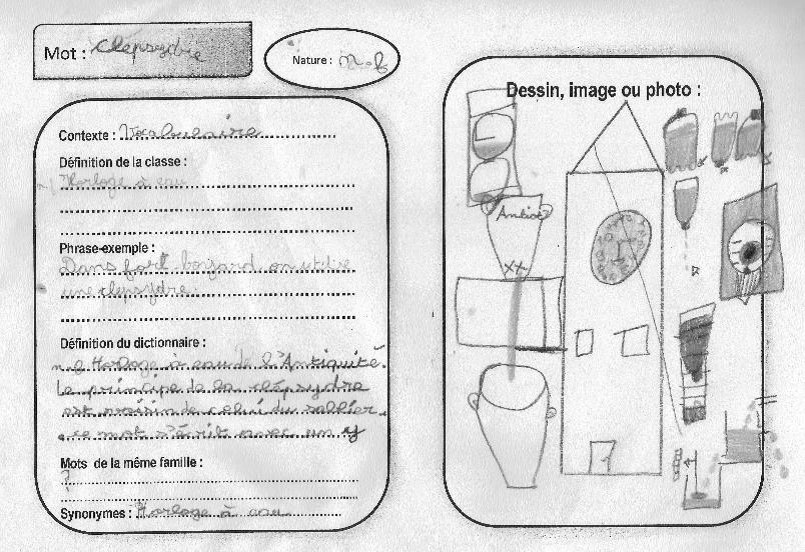 Mot : Clepsydre
Nature : n.f
Contexte : Vocabulaire
Définition de la classe :
Horloge à eau
Phrase-exemple :
Dans fort boyard on utilise
une clepsydre.
Définition du dictionnaire :
n.f Horloge à eau de l'Antiquité.
Le principe de la clépsydre
est voisin de celui du sablier.
ce mot s'écrit avec un y
Mots de la même famille :
?
Synonymes : Horloge à eau
Dessin, image ou photo :